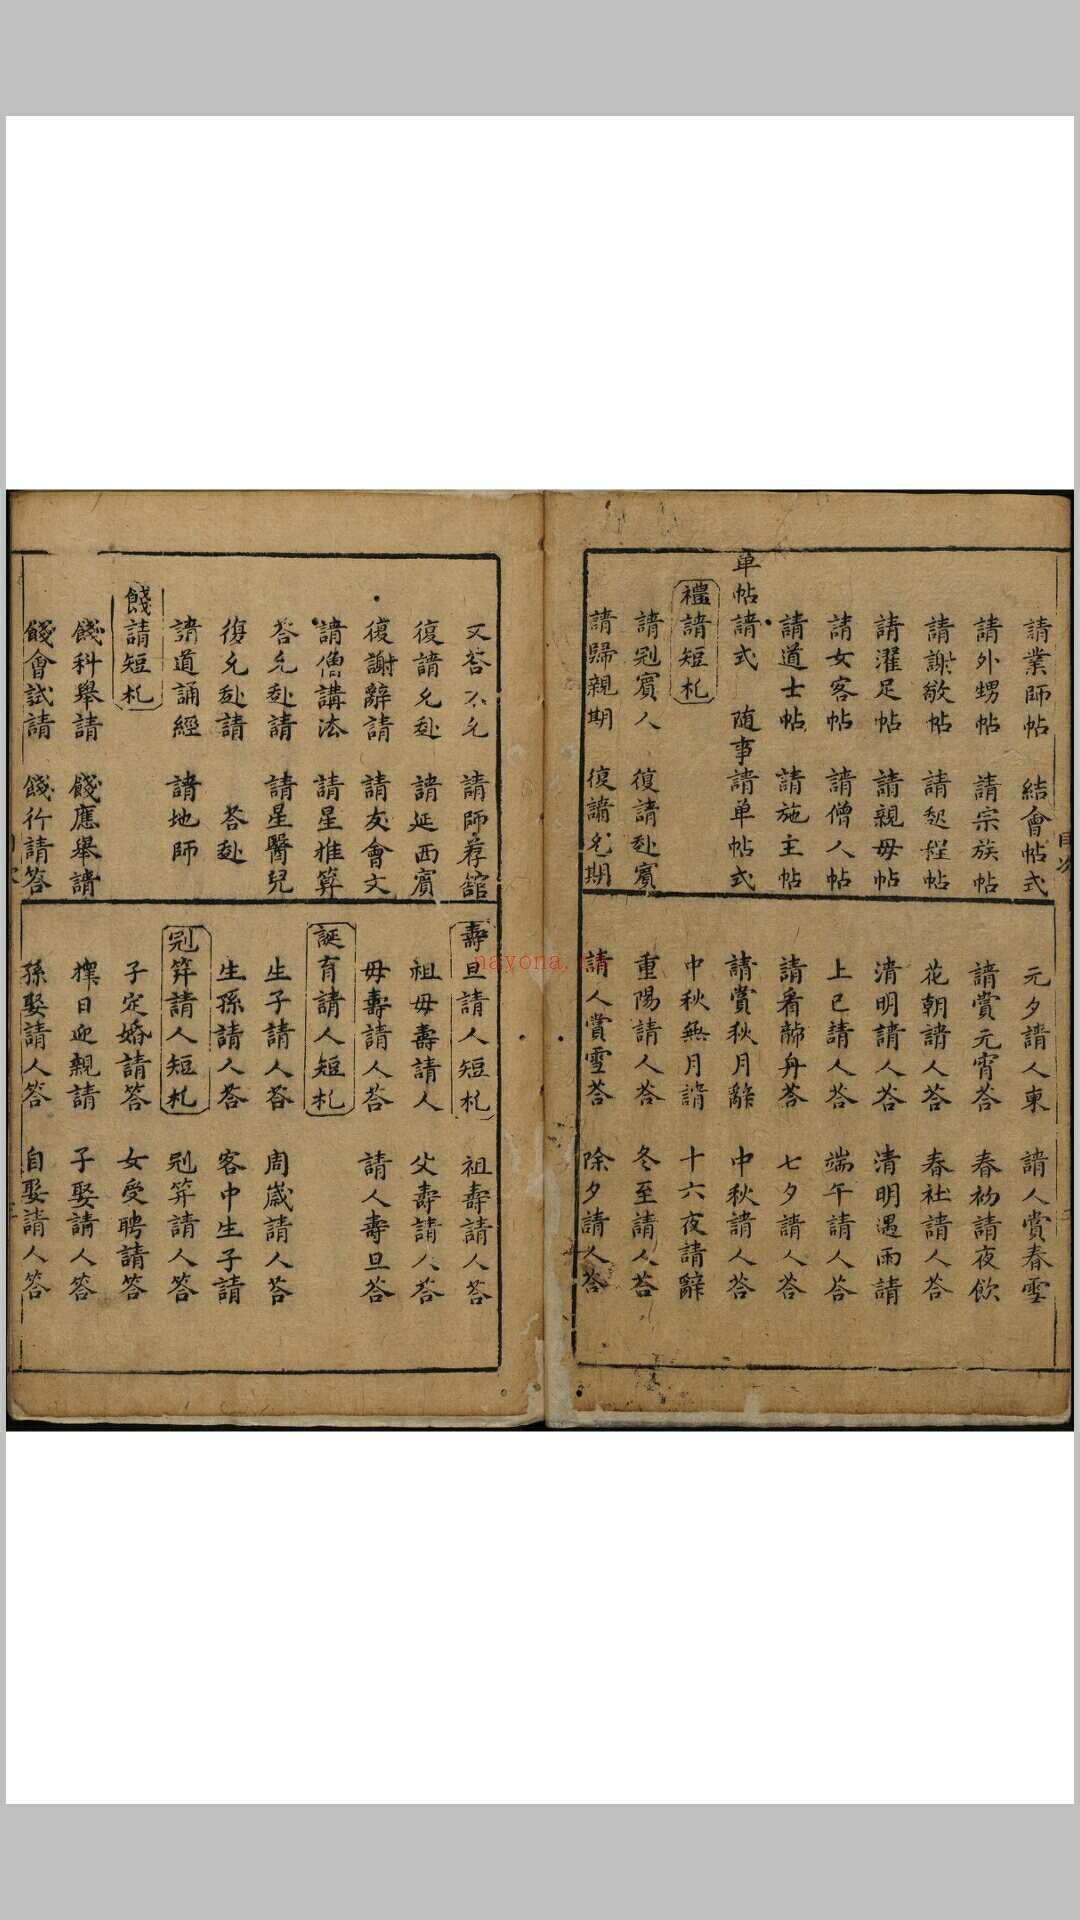 請業師帖　結會帖式
請外甥帖　請宗族帖
請謝敬帖　請起程帖
請濯足帖　請親母帖
請女客帖　請僧人帖
請道士帖　請施主帖
单帖請式　随事請单帖式
禮請短札
請冠賓人　復請赴賓
請歸親期　復請允期
元夕請人東　請人賞春雪
請賞元宵荅　春初請夜飲
花朝請人荅　春社請人荅
清明請人荅　清明遇雨請
上巳請人荅　端午請人荅
請看龍舟荅　七夕請人荅
請賞秋月辭　中秋請人荅
中秋無月請　十六夜請辭
重陽請人荅　冬至請人荅
請人賞雪荅　除夕請人荅
目次
又荅不允　請師荐舘
復請允赴　請延西賓
復謝辭請　請友會文
請僧講法　請星推算
荅允赴請　請星醫兒
復允赴請　荅赴
請道誦經　請地師
餞請短札
餞科舉請　餞應舉請
餞會試請　餞行請荅
壽旦請人短札　祖壽請人荅
祖母壽請人　父壽請人荅
母壽請人荅　請人壽旦荅
誕育請人短札
生子請人荅　周歲請人荅
生孫請人荅　客中生子請
冠笄請人短札　冠笄請人荅
子定婚請荅　女受聘請荅
擇日迎親請　子娶請人荅
孫娶請人荅　自娶請人荅
nayona.cn